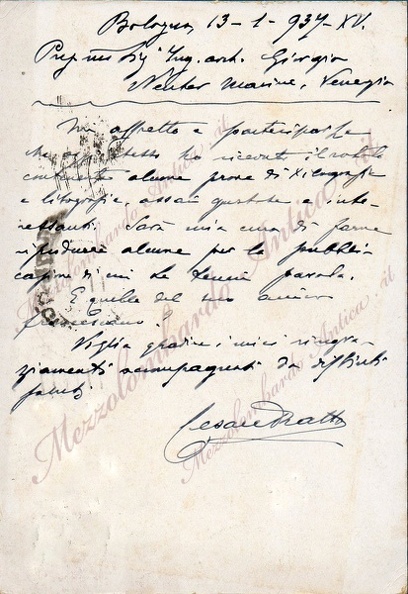 Bologna, 13-1-937-XV.
Ing. arch. Giorgio
Marini, Venezia
Mi affretto a parteciparLe
che ho ricevuto il rotolo
contenente alcune prove di xilografie
e litografie, assai gustose e inte-
ressanti. Sarà mia cura di farne
riprodurre alcune per la pubbli-
cazione di cui Le tenni parola.
E quelle del suo amico
Veglia gradire i miei ringra-
ziamenti accompagnati da distinti
saluti
Cesare Ratta
Mezzolombardo Antica.it
Mezzolombardo Antica.it